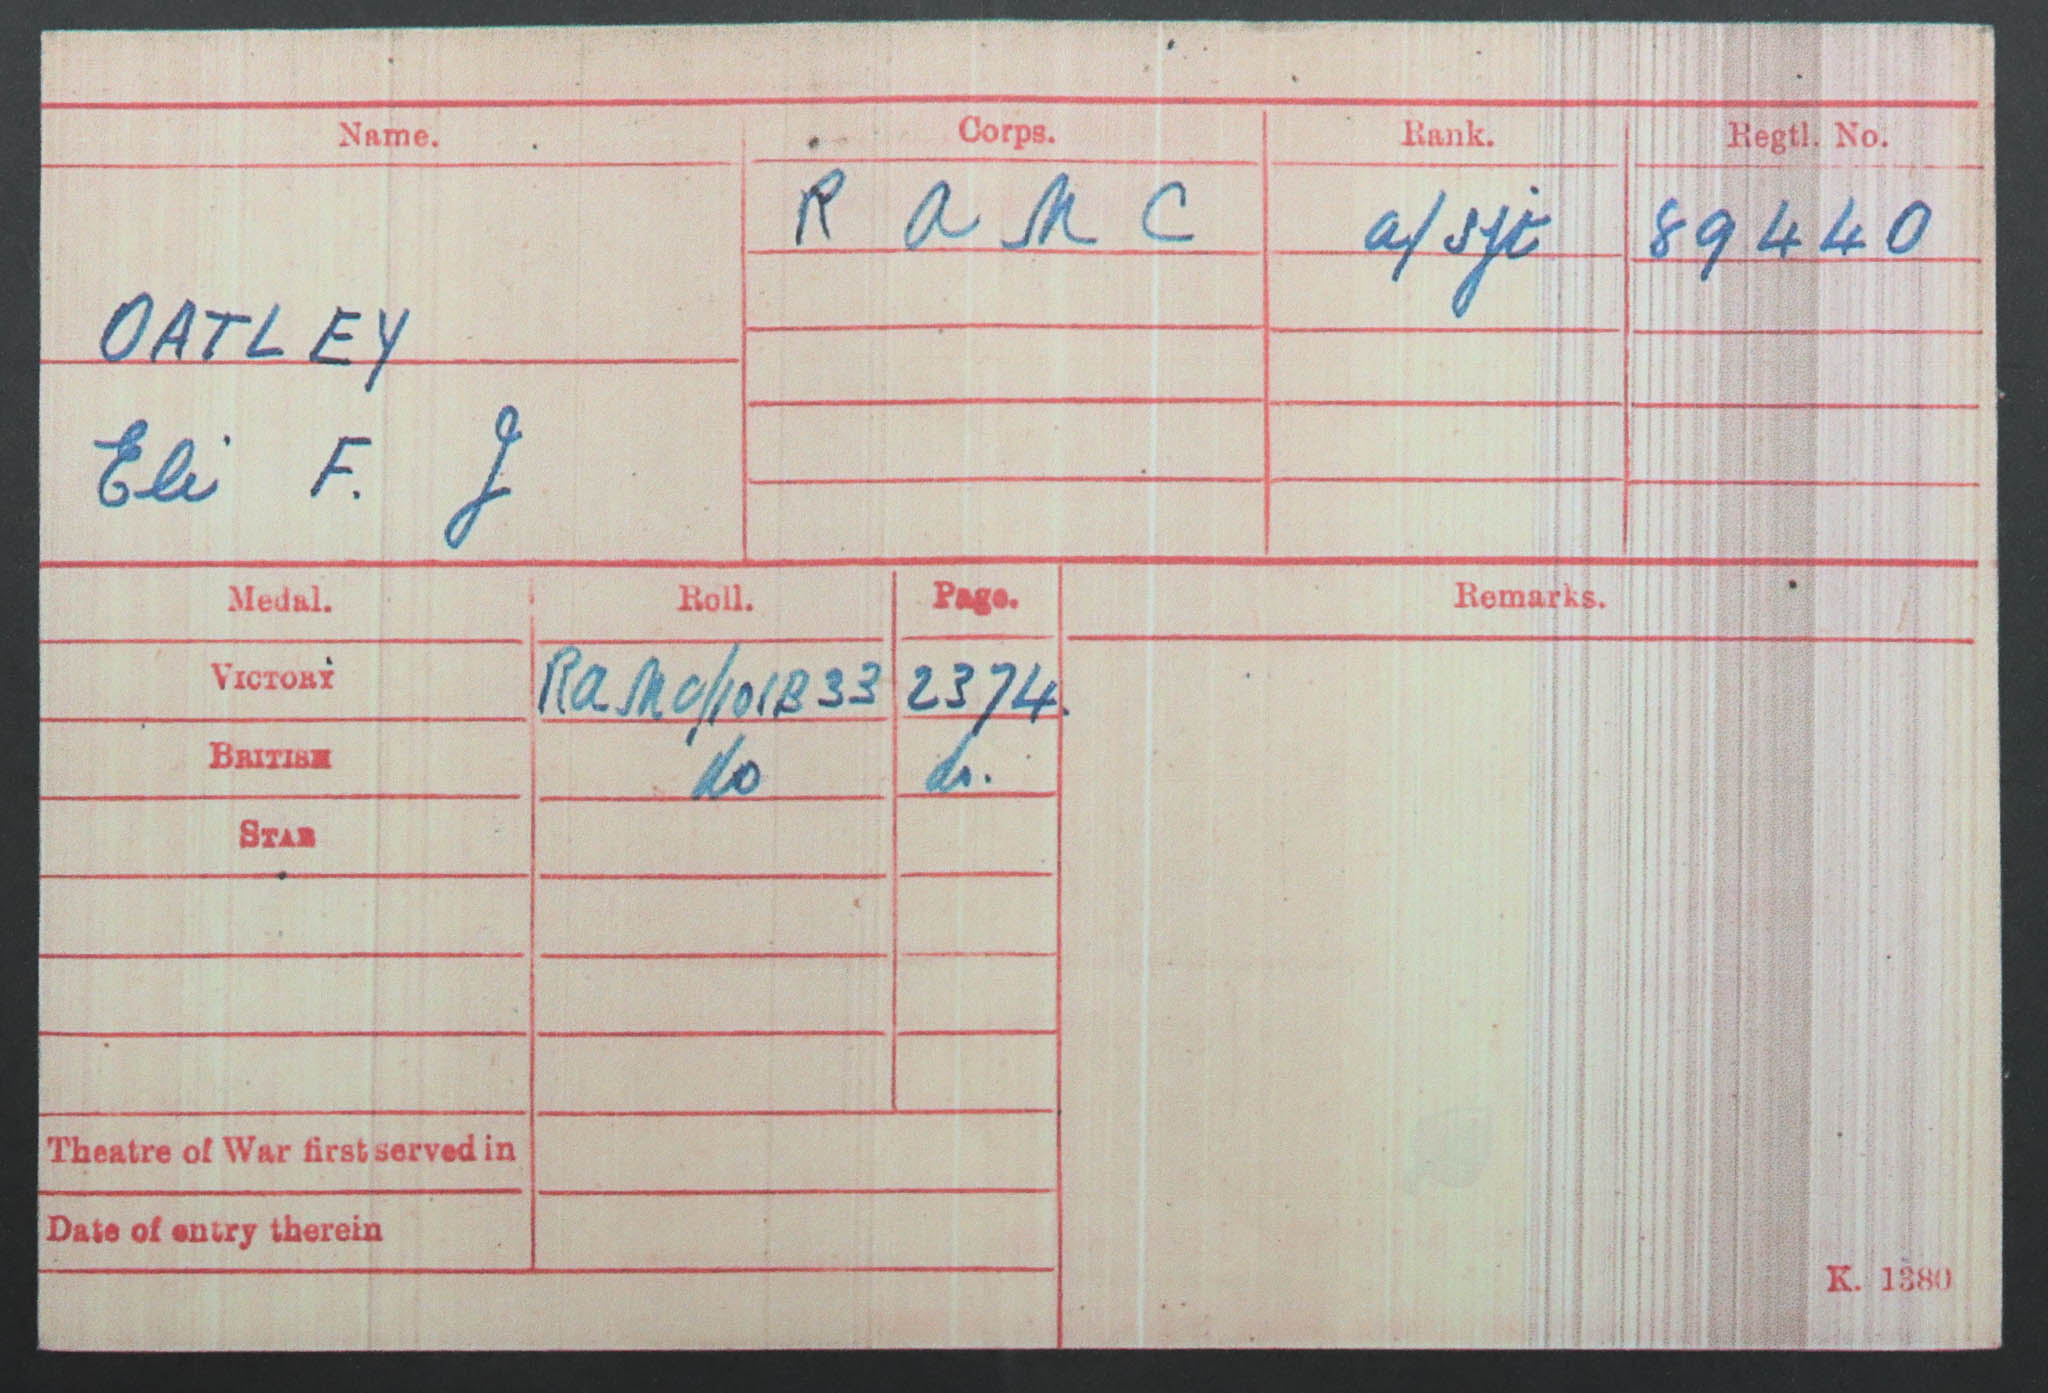 Name. Corps. Rank. Regtl. No.
R A M C a/Sjt 89440
OATLEY
Eli F. J
Medal. Roll. Page. Remarks.
VICTORY RAMC/101B33 2374.
BRITISH do do.
STAR
Theatre of War first served in
Date of entry therein
K. 1380